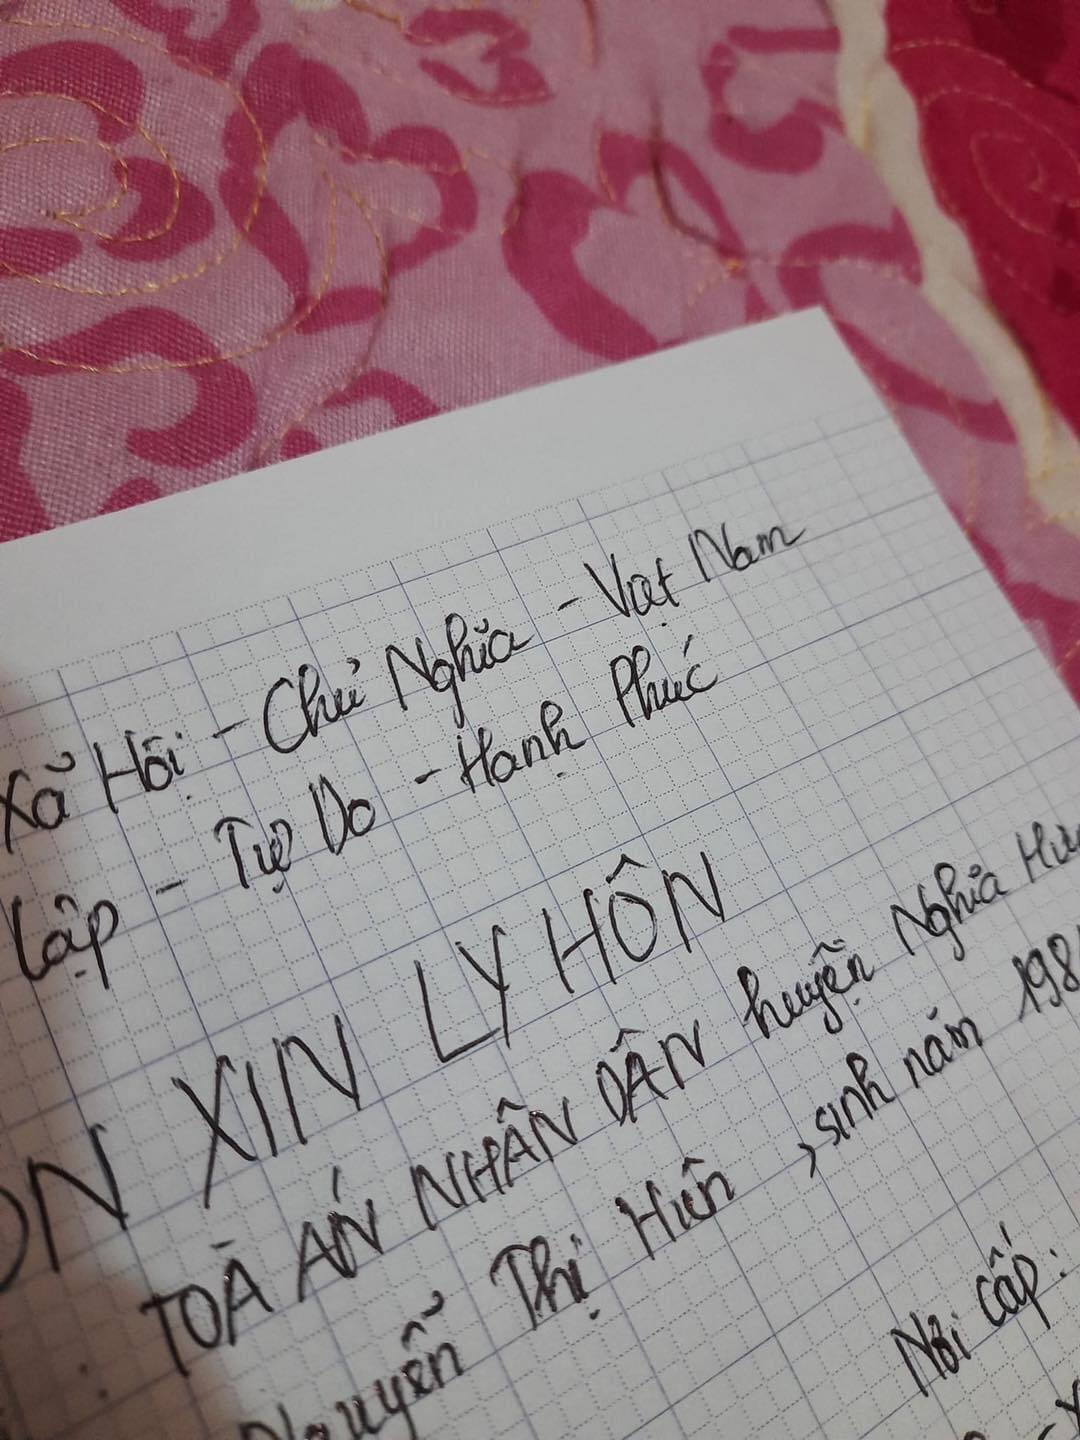 Xã Hội - Chủ Nghĩa - Việt Nam
Lập - Tự Do - Hạnh Phúc
ƠN XIN LY HÔN
: TOÀ ÁN NHÂN DÂN huyện Nghĩa Hư
Nguyễn Thị Hiên, sinh năm 198
Nơi cấp: